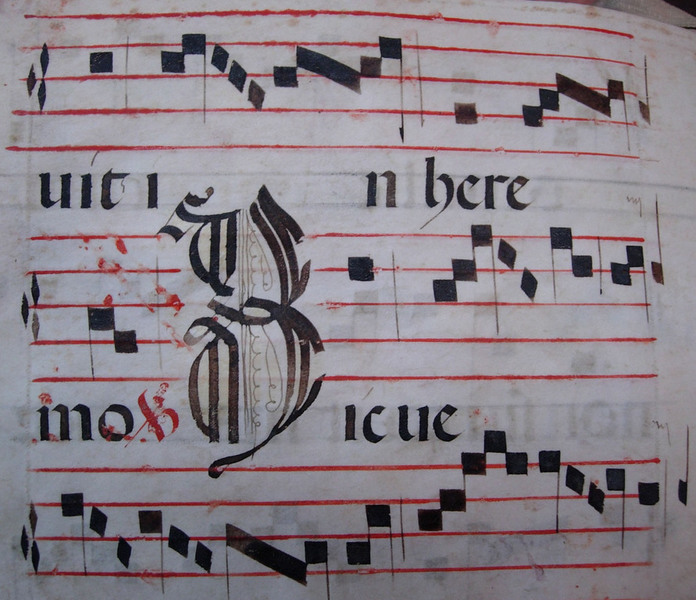 uit i n here
mo ℣ Hic ue